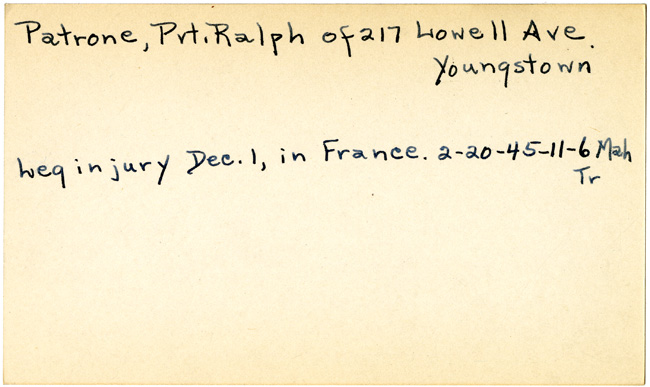 Patrone, Pvt. Ralph of 217 Lowell Ave.
Youngstown
Leg injury Dec. 1, in France. 2-20-45-11-6 Mah
Tr